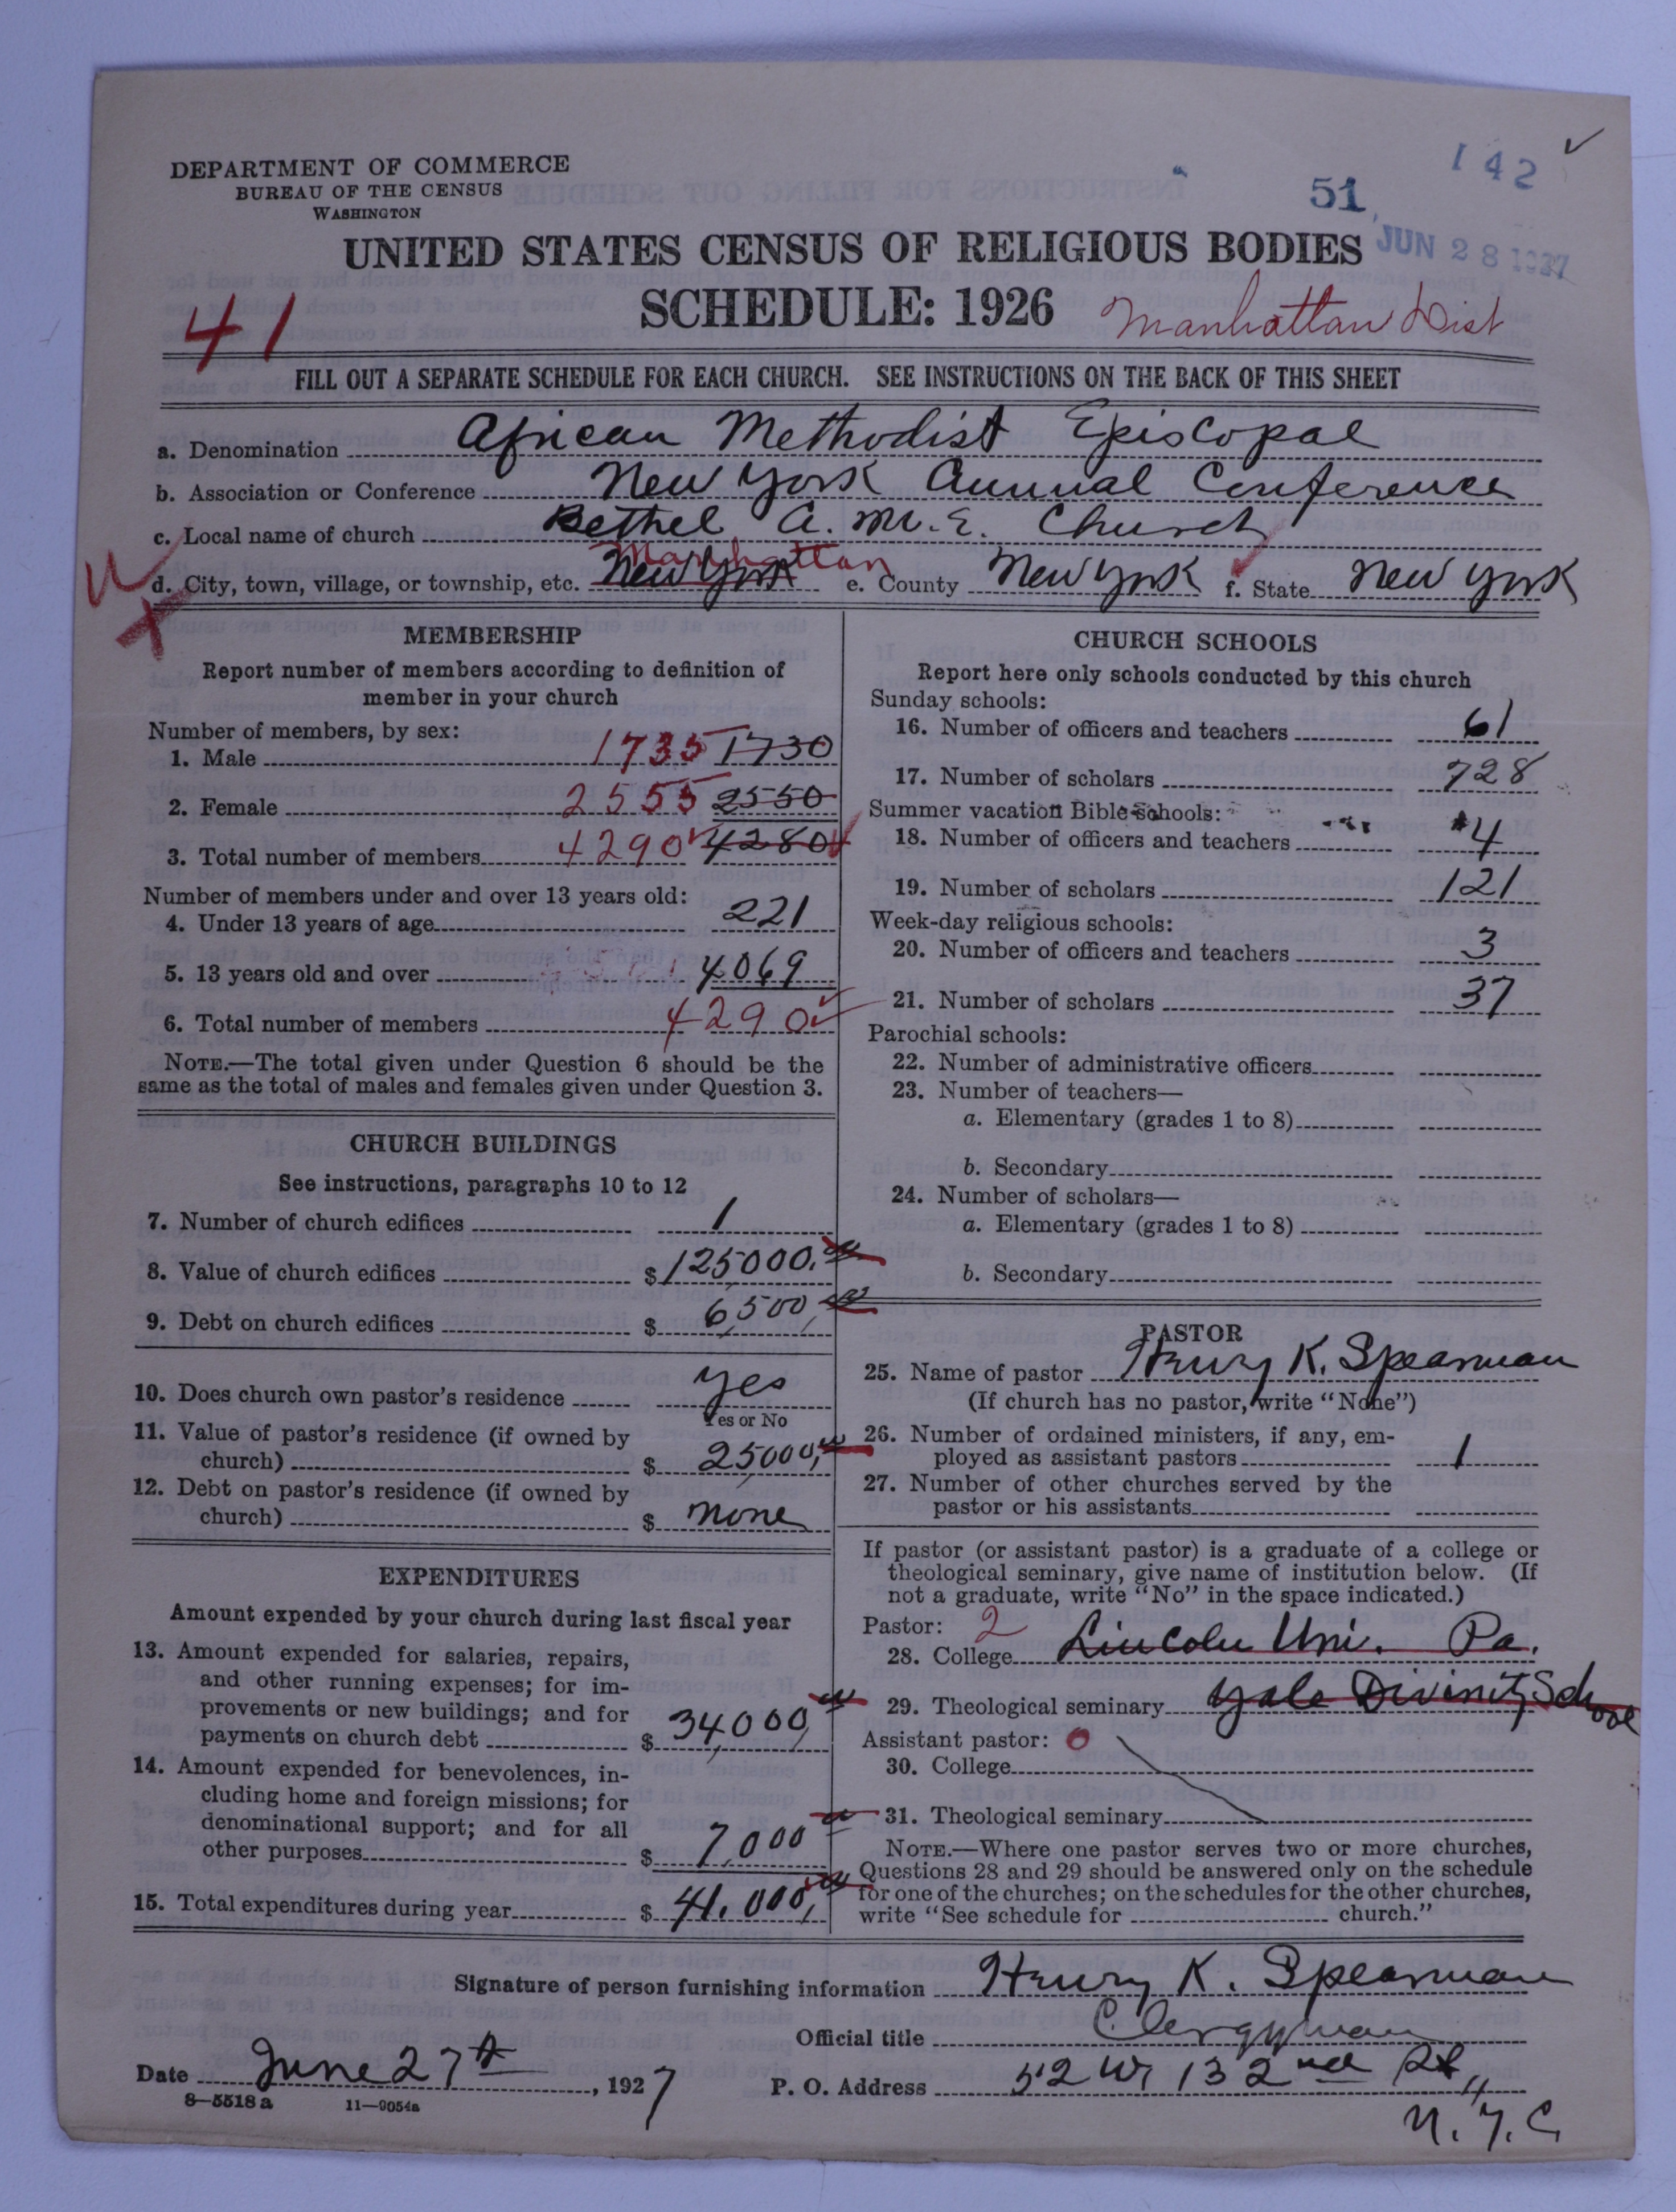 DEPARTMENT OF COMMERCE
BUREAU OF THE CENSUS
WASHINGTON
142
51
JUN 28 1927
UNITED STATES CENSUS OF RELIGIOUS BODIES
SCHEDULE: 1926
41
Manhattan Dist
FILL OUT A SEPARATE SCHEDULE FOR EACH CHURCH. SEE INSTRUCTIONS ON THE BACK OF THIS SHEET
a. Denomination African Methodist Episcopal
b. Association or Conference New York Annual Conference
c. Local name of church Bethel A.M.E. Church
Manhattan
d. City, town, village, or township, etc. New York e. County New York f. State New York
MEMBERSHIP
Report number of members according to definition of
member in your church
Number of members, by sex:
1. Male 1735 1730
2. Female 2555 2550
3. Total number of members 4290 4280
Number of members under and over 13 years old:
4. Under 13 years of age 221
5. 13 years old and over 4069
6. Total number of members 4290
NOTE.—The total given under Question 6 should be the
same as the total of males and females given under Question 3.
CHURCH BUILDINGS
See instructions, paragraphs 10 to 12
7. Number of church edifices 1
8. Value of church edifices $ 125000.00
9. Debt on church edifices $ 6,500,00
10. Does church own pastor's residence yes
Yes or No
11. Value of pastor's residence (if owned by
church) $ 25000,00
12. Debt on pastor's residence (if owned by
church) $ none
EXPENDITURES
Amount expended by your church during last fiscal year
13. Amount expended for salaries, repairs,
and other running expenses; for im-
provements or new buildings; and for
payments on church debt $ 34,000,00
14. Amount expended for benevolences, in-
cluding home and foreign missions; for
denominational support; and for all
other purposes $ 7,000 00
15. Total expenditures during year $ 41.000,00
CHURCH SCHOOLS
Report here only schools conducted by this church
Sunday schools:
16. Number of officers and teachers 61
17. Number of scholars 728
Summer vacation Bible schools:
18. Number of officers and teachers 4
19. Number of scholars 121
Week-day religious schools:
20. Number of officers and teachers 3
21. Number of scholars 37
Parochial schools:
22. Number of administrative officers
23. Number of teachers—
a. Elementary (grades 1 to 8)
b. Secondary
24. Number of scholars—
a. Elementary (grades 1 to 8)
b. Secondary
PASTOR
25. Name of pastor Henry K. Spearman
(If church has no pastor, write "None")
26. Number of ordained ministers, if any, em-
ployed as assistant pastors 1
27. Number of other churches served by the
pastor or his assistants
If pastor (or assistant pastor) is a graduate of a college or
theological seminary, give name of institution below. (If
not a graduate, write "No" in the space indicated.)
Pastor: 2
28. College Lincoln Uni. Pa.
29. Theological seminary Yale Divinity School
Assistant pastor: 0
30. College
31. Theological seminary
NOTE.—Where one pastor serves two or more churches,
Questions 28 and 29 should be answered only on the schedule
for one of the churches; on the schedules for the other churches,
write "See schedule for church."
Signature of person furnishing information Henry K. Spearman
Official title Clergyman
Date June 27th, 1927 P. O. Address 52 W 132nd St,
N.Y.C
8—5518 a 11—9054a